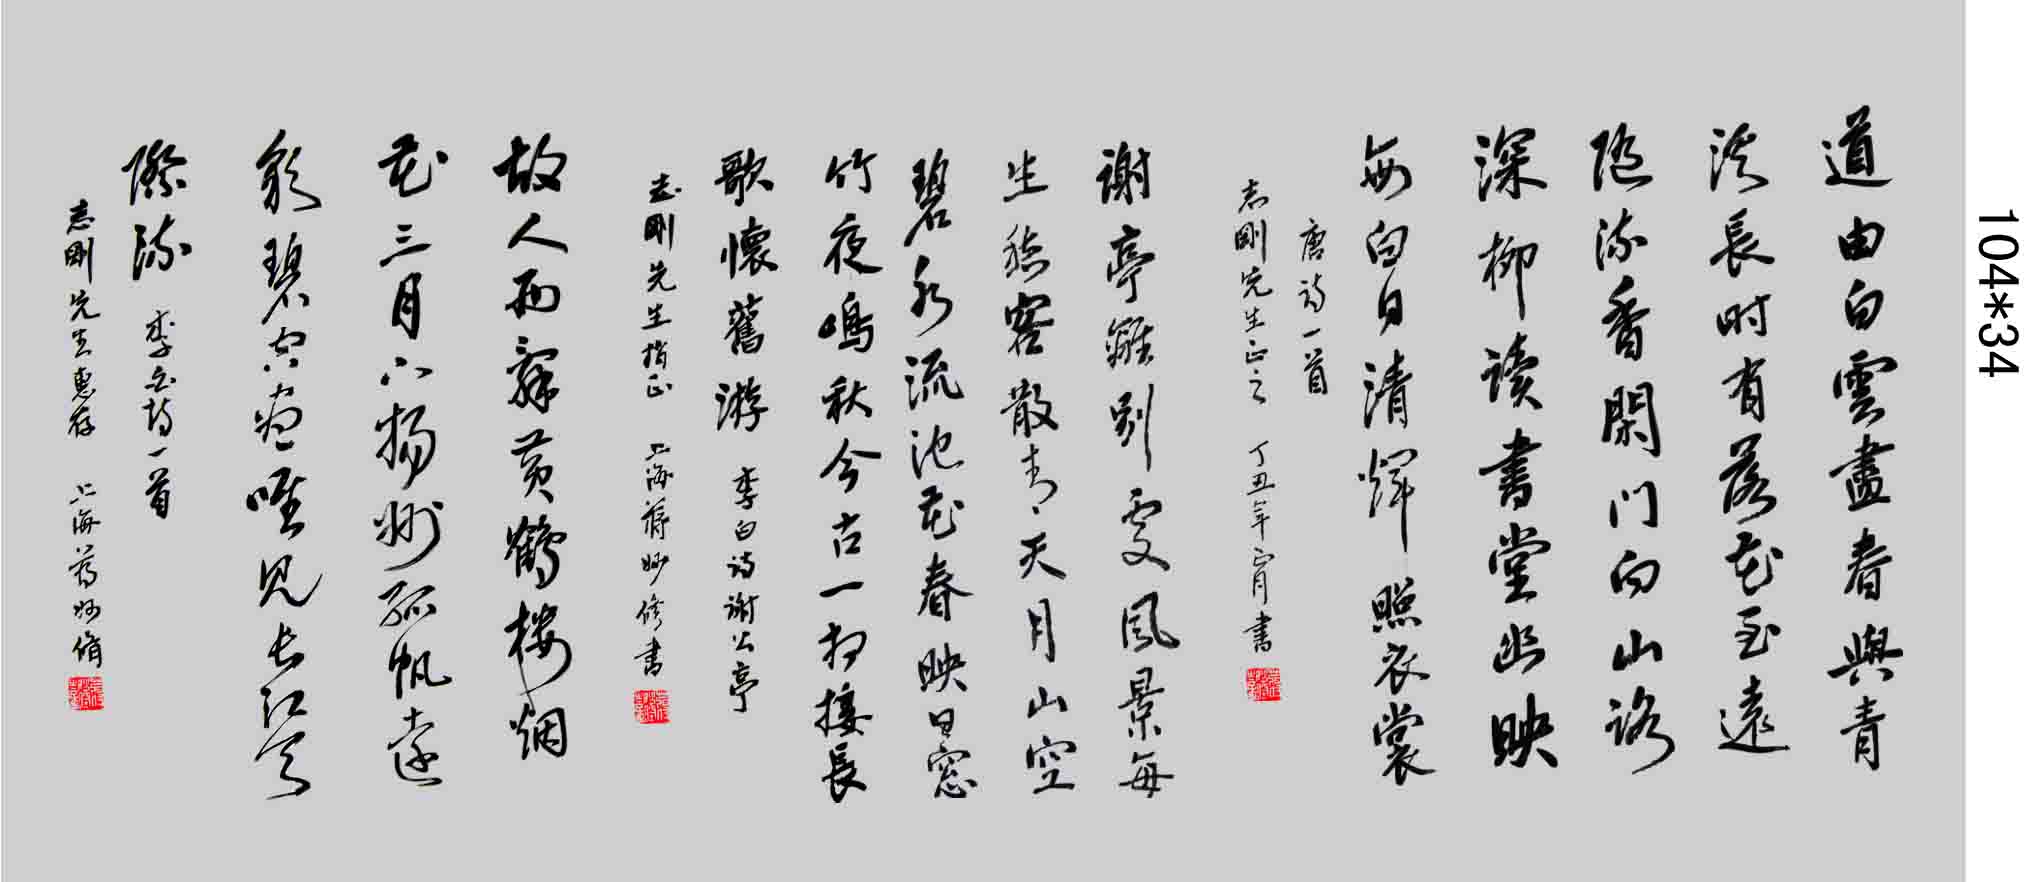 道由白雲盡春與青
溪長时有落花至遠
随流香閑门向山路
深柳读書堂幽映
每白日清輝照衣裳
唐诗一首
志剛先生正之 丁丑年正月書
谢亭離别處風景每
生愁客散青天月山空
碧水流池花春映日窓
竹夜鳴秋今古一相接長
歌懷舊游 李白诗谢公亭
志剛先生指正 上海蒋妙修書
故人西辭黄鹤楼烟
花三月下扬州孤帆遠
影碧空盡唯见长江天
際流 李白詩一首
志剛先生惠存 上海蒋妙脩
104*34